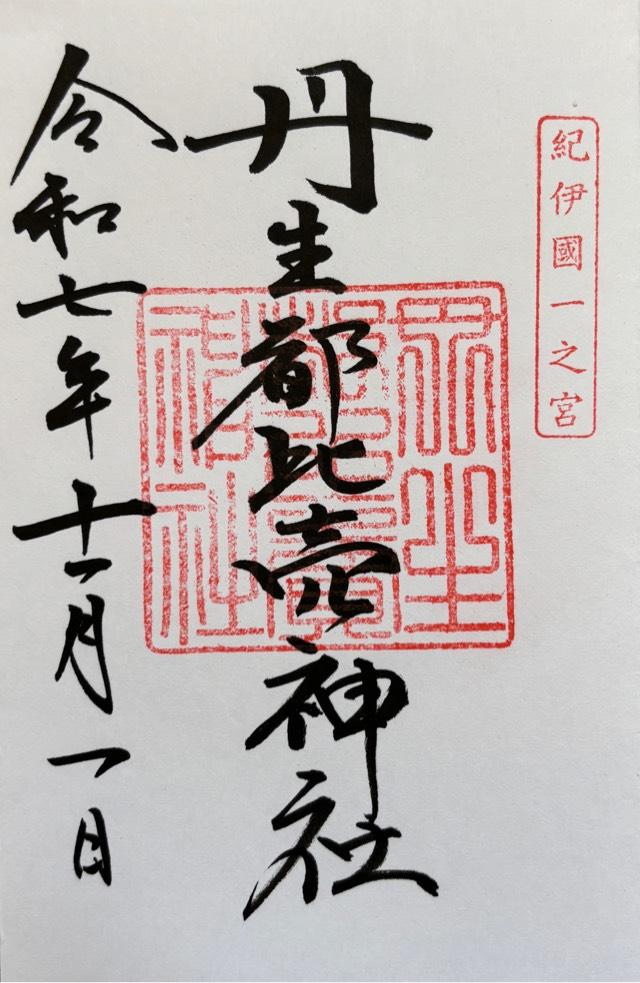 紀伊國一之宮
丹生都比売神社
令和七年十一月一日